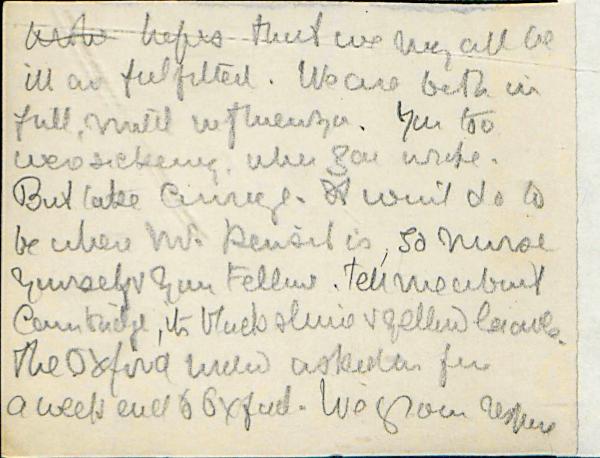 hopes that we may all be
ill are fulfilled. We are both in
full, influenza. You too
were sickening, when you wrote.
But take courage. It won't do to
be where Mr. is, so nurse
yourself & your Fellow. Tell me about
Cambridge, its black slime & yellow leaves.
The Oxford asked us for
a week end to Oxford. We